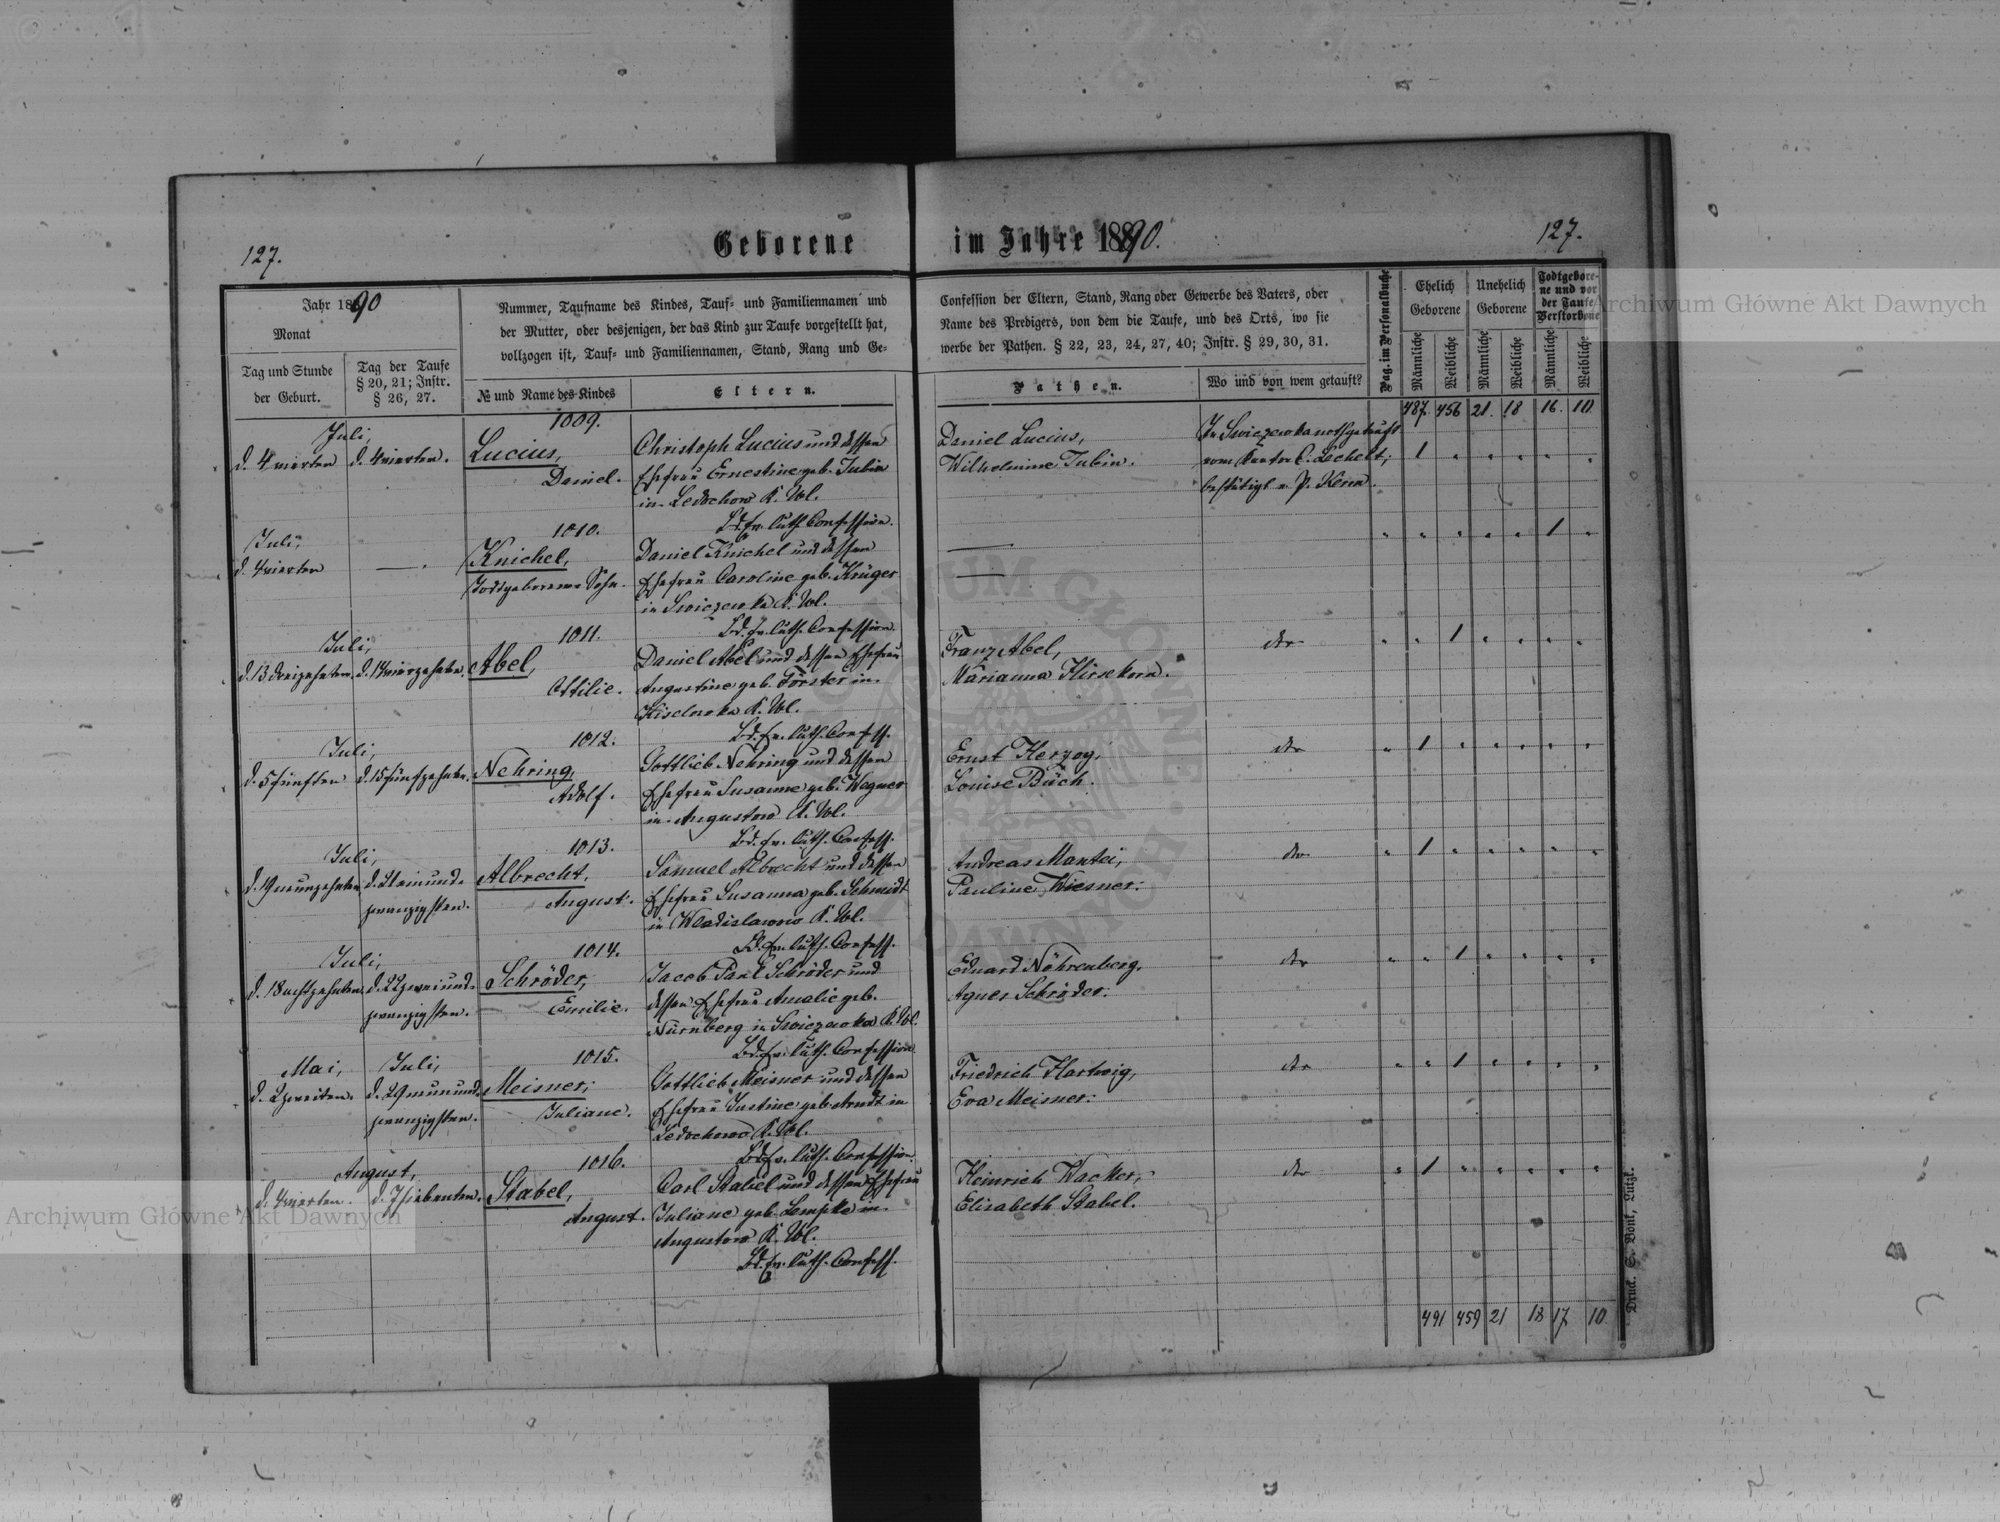 127.
Geborene
im Jahre 1890.
127.
Jahr 1890
Monat
Tag und Stunde
der Geburt.
Tag der Taufe
§ 20, 21; Instr.
§ 26, 27.
Nummer, Taufname des Kindes, Tauf- und Familiennamen und
der Mutter, oder desjenigen, der das Kind zur Taufe vorgestellt hat,
vollzogen ist, Tauf- und Familiennamen, Stand, Rang und Ge-
№ und Name des Kindes
Eltern.
Confession der Eltern, Stand, Rang oder Gewerbe des Vaters, oder
Name des Predigers, von dem die Taufe, und des Orts, wo sie
werbe der Pathen. § 22, 23, 24, 27, 40; Instr. § 29, 30, 31.
Pathen.
Wo und von wem getauft?
Pag. im Personalbuche
Ehelich
Geborene
Unehelich
Geborene
Todtgebore-
ne und vor
der Taufe
Verstorbene
Männliche
Weibliche
Männliche
Weibliche
Männliche
Weibliche
487. 456 21. 18 16. 10
Juli,
d. 4 vierten
d. 4 vierten.
1009.
Lucius,
Daniel.
Christoph Lucius und dessen
Ehefrau Ernestine geb. Jubin
in Ledochow K. Wl.
Bd. ev. luth. Confession.
Daniel Lucius,
Wilhelmine Jubin.
In Swiczewka nothgetauft
vom Kantor C. Lechelt;
bestätigt v. P. Kern.
1
Juli,
d. 4 vierten
1010.
Knichel,
Todtgeborener Sohn.
Daniel Knichel und dessen
Ehefrau Caroline geb. Krüger
in Swiczewka K. Wl.
Bd. ev. luth. Confession.
1
Juli,
d. 13 dreizehnten.
d. 14 vierzehnten.
1011.
Abel,
Ottilie.
Daniel Abel und dessen Ehefrau
Augustine geb. Förster in
Kiselewka K. Wl.
Bd. ev. luth. Confess.
Franz Abel,
Marianna Hirsekorn.
dto
1
Juli,
d. 5 fünften
d. 15 fünfzehnten.
1012.
Nehring,
Adolf.
Gottlieb Nehring und dessen
Ehefrau Susanne geb. Wegner
in Augustow K. Wl.
Bd. ev. luth. Confess.
Ernst Herzog,
Louise Büch.
dto
1
Juli,
d. 19 neunzehnten
d. 21 einund-
zwanzigsten.
1013.
Albrecht,
August.
Samuel Albrecht und dessen
Ehefrau Susanna geb. Schmidt
in Wladislawow K. Wl.
Bd. ev. luth. Confess.
Andreas Mantei,
Pauline Wiesner.
dto
1
Juli,
d. 18 achtzehnten
d. 22 zweiund-
zwanzigsten.
1014.
Schröder,
Emilie.
Jacob Paul Schröder und
dessen Ehefrau Amalie geb.
Nürnberg in Swiczewka K. Wl.
Bd. ev. luth. Confession
Eduard Nöhrenberg,
Agnes Schröder.
dto
1
Mai,
d. 2 zweiten.
Juli,
d. 29 neunund-
zwanzigsten.
1015.
Meisner,
Juliane.
Gottlieb Meisner und dessen
Ehefrau Justine geb. Arndt in
Ledochowo K. Wl.
Bd. ev. luth. Confession.
Friedrich Hartwig,
Eva Meisner.
dto
1
August,
d. 4 vierten
d. 7 siebenten.
1016.
Stabel,
August.
Carl Stabel und dessen Ehefrau
Juliane geb. Lempke in
Augustow K. Wl.
Bd. ev. luth. Confess.
Heinrich Wacker,
Elisabeth Stabel.
dto
1
491 459 21 18 17 10
Druck. S. Bonk, Lutzk.
Archiwum Główne Akt Dawnych
Archiwum Główne Akt Dawnych